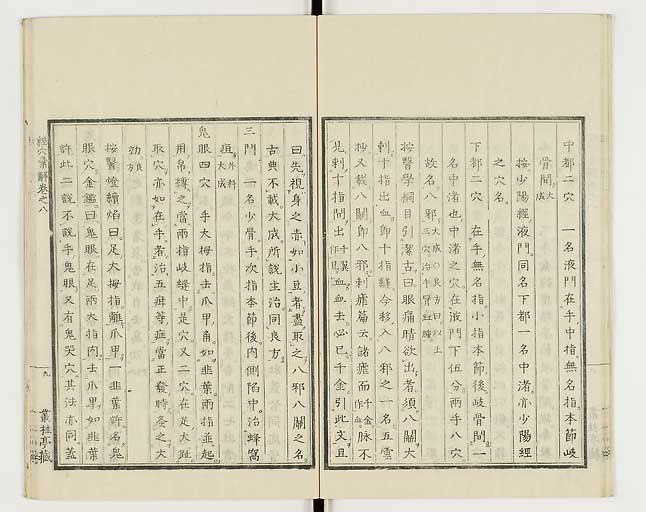 中都二穴 一名液門在手中指無名指本節岐
骨間大成
按少陽經液門同名下都一名中渚亦少陽經
之穴名
下都二穴 在手無名指小指本節後岐骨間一
名中渚也中渚之穴在液門下伍分兩手八穴
故名八邪大成〇良方曰以上三穴治手臂紅腫
按醫學綱目引潔古曰眼痛睛欲出者須八關大
刺十指出血即十指縫今移入八邪之一名五雲
抄又載八關即八邪刺瘧篇云諸瘧而千金作血脉不
見刺十指間出千翼作見血血去必已千金引此文且
曰先視身之赤如小豆者盡取之八邪八關之名
古典不載大成所說主治同良方
三門 一名少骨手次指本節後內側陷中治蜂窩
疽外科大成
鬼眼四穴 手大拇指去爪甲角如韭葉兩指並起
用帛縛之當兩指岐縫中是穴又二穴在足大趾
取穴亦如在手者治五癎等症當正發時灸之大
効良方
按醫燈續焰曰足大拇指離爪甲一韭葉許名鬼
眼穴金鑑曰鬼眼在足兩大指肉去爪甲如韭葉
許此二說不說手鬼眼又有鬼哭穴其法亦同蓋
經穴彙解卷之八
九
叢桂亭藏